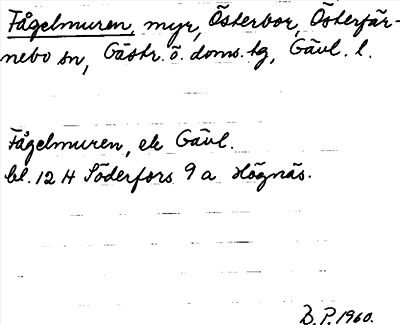 Fågelmuren, myr, Österbor, Österfär-
nebo sn, Gästr. ö. doms. tg, Gävl. l.
Fågelmuren, ek Gävl.
bl. 12 H Söderfors 9 a Högnäs.
B.P. 1960.